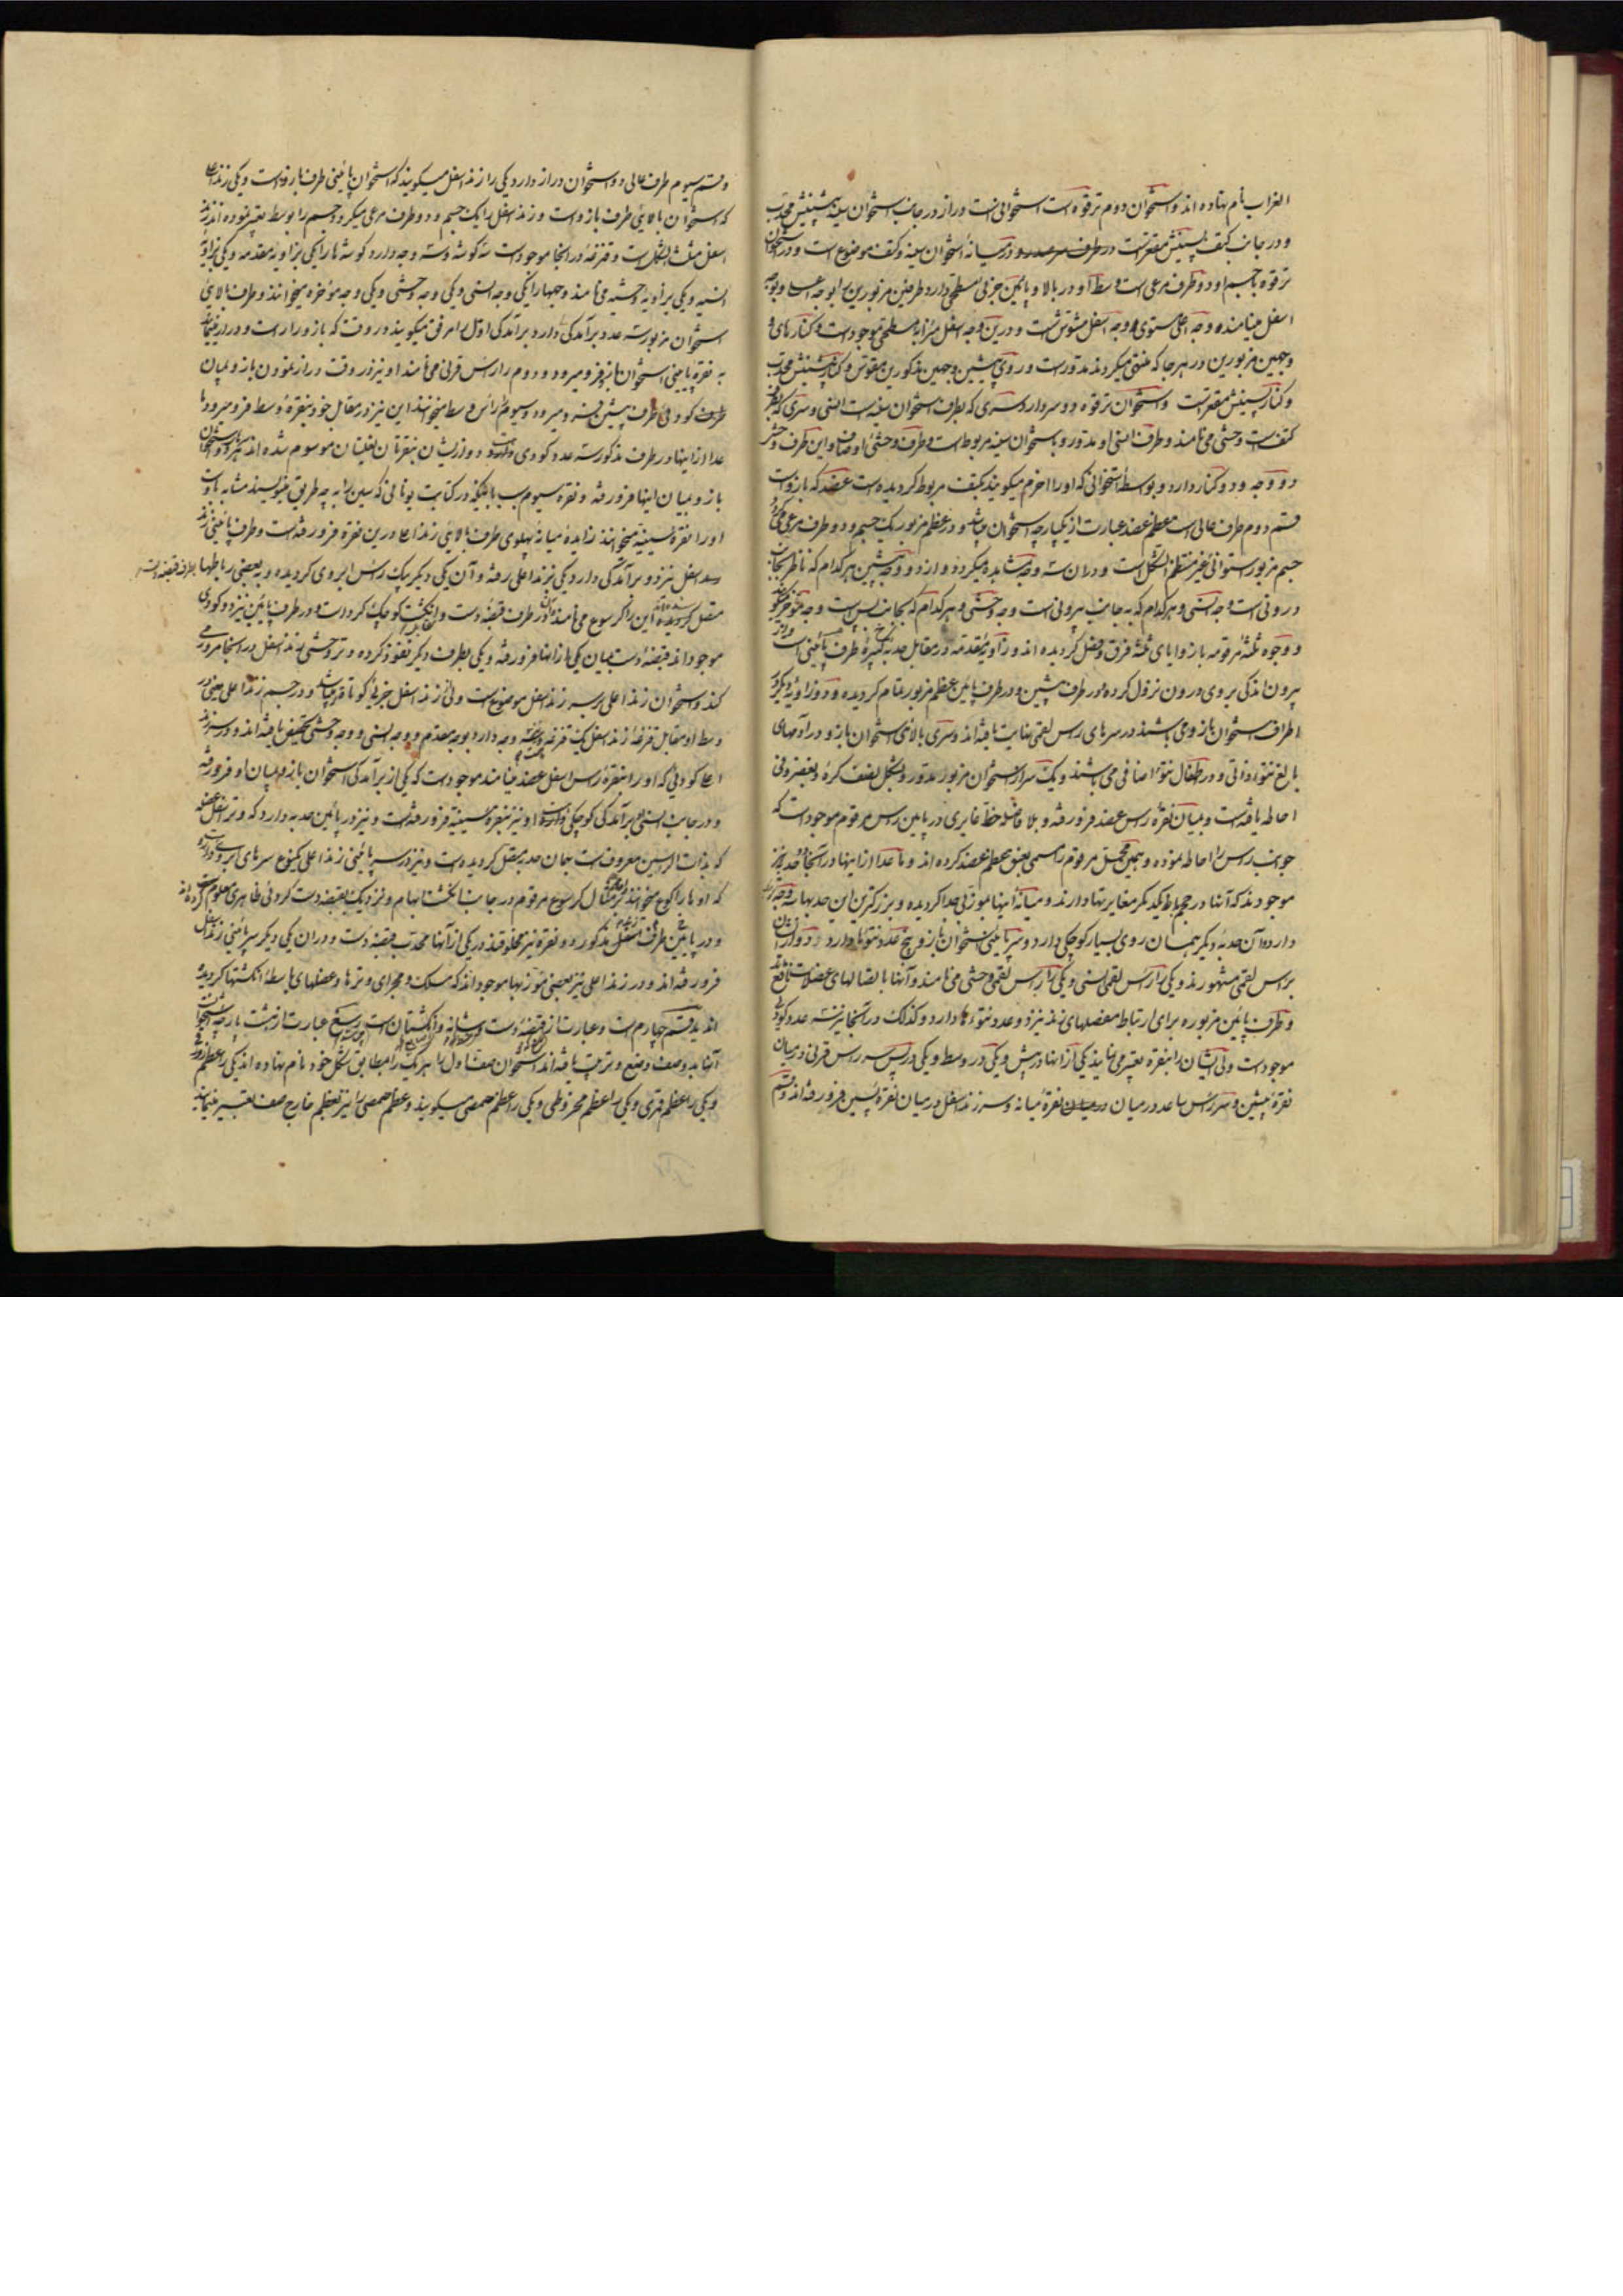 الغراب نام نهاده اند و استخوان دوم ترقوه است استخوانی است دراز در جانب استخوان سینه پیشینش محدب
و در جانب کتف پسینش مقعر است در میانهٔ استخوان سینه و کتف موضوع است و در استخوان
ترقوه یک جسم و دو طرف مرعی است وسط او در بالا و پائین جزئی مسطحی دارد طرفین مزبورین را بوجه اعلی و بوجه
اسفل مینامند وجه اعلی مستوی و وجه اسفل مشوش است و درین وجه اسفل میزابه سطحی موجود است و کنارهای
وجهین مزبورین در هر جا که منتهی میکردند مدور است و روی پیشین وجهین مذکورین مقوس و کنار پیشینش محدب
و کنار پسینش مقعر است و استخوان ترقوه دو سر دارد سری که بطرف استخوان سینه است انسی و سری که بطرف
کتف است وحشی می نامند و طرف انسی او مدور و باستخوان سینه مربوط است و طرف وحشی او صاف و این طرف وحشی
دو وجه و دو کنار دارد و بواسطهٔ استخوانی که او را اخرم میکویند بکتف مربوط کردیده است عضد که بازو است
قسم دوم طرف عالی است عظم عضد عبارت از یکپارچه استخوان میباشد و در عظم مزبور یک جسم و دو طرف مرعی میکردد
جسم مزبور استوانی غیر منتظم الشکل است و در ان سه وجه مشاهده میکردد و از دو وجه پیشین هر کدام که ناظر بجانب
درونی است وجه انسی و هر کدام که به جانب بیرونی است وجه وحشی و هر کدام که بجانب پس است وجه مؤخر میکویند
و وجوه ثلثهٔ مرقومه با زوایای ثلثه فرق و فصل کردیده اند و زاویهٔ مقدمه در مقابل حدبه کبیرهٔ طرف پائینی است و از
بیرون اندکی بروی درون نزول کرده در طرف پیشین و در طرف پائین عظم مزبور تمام کردیده و دو زاویهٔ دیکر در
اطراف استخوان بازو می باشند در سرهای راس لقمی نهایت یافته اند و سری بالای استخوان بازو در آدمهای
بالغ نتوء ذاتی و در طفال نتوء اضافی می باشند و یک سر از استخوان مزبور مدور و بشکل نصف کره و بغضروفی
احاطه یافته است و بمیان نقرهٔ راس عضد فرو رفته و بلا فاصله خط غایری در پایین راس مرقوم موجود است که
جوانب راس را احاطه نموده و بهمین محل مرقوم رسمی بعنق عظم عضد کرده اند و ما عدا از اینها در آنجا دو حدبه نیز
موجودند که آنها در حجم با یکدیکر مغایرتها دارند و میانهٔ اینها بموزبی جدا کردیده و بزرکترین این حدبها سه وجه
دارد و آن حدبهٔ دیکر همسان روی بسیار کوچکی دارد و سر پائینی استخوان بازو پنج عدد نتوءها دارد و دو از ان
براس لقمی مشهورند و یکی را راس لقمی انسی و یکی را راس لقمی وحشی می نامند و آنها با اتصالهای عضلات نافعند
و طرف پائین مزبوره برای ارتباط مفصلهای زند نیز دو عدد نتوءها دارد و کذلک در آنجا نیز سه عدد کودی
موجود است ولی ایشان را بنقره تعبیر می نمایند یکی از اینها در پیش و یکی در وسط و یکی در پس سه راس قرنی در میان
نقرهٔ پیشین و سر راس ساعد در میان نقرهٔ میانه و سر زند اسفل در میان نقرهٔ پسین فرو رفته اند و قسم
و قسم سیوم طرف عالی دو استخوان دراز دارد یکی را زند اسفل میکویند که استخوان پائینی طرف بازو است و یکی زند اعلی
که استخوان بالایی طرف بازو است و زند اسفل را یک جسم و دو طرف مرعی میکردد و جسم را بوسط تعبیر نموده اند زند
اسفل مثلث الشکل است و قنزعهٔ در انجا موجود است سه کوشه و سه وجه دارد کوشه ها را یکی بزاویهٔ مقدمه و یکی بزاویهٔ
انسیه و یکی بزاویهٔ وحشیه می نامند و وجهها را یکی وجه انسی و یکی وجه وحشی و یکی وجه مؤخره میخوانند و طرف بالای
استخوان مزبور سه عدد برآمدکی دارد برآمدکی اول را مرفق میکویند در وقت که بازو دراز است و دراز نیفتاده
به نقرهٔ پائینی استخوان بازو فرو میرود و دوم را راس قرنی می نامند او نیز در وقت دراز نمودن بازو بمیان
طرف کودی طرف پیشین رفته و میرود و سیوم را راس وسط میخوانند این نیز در مقابل خود بنقرهٔ وسط فرو میرود و ما
عدا از اینها در طرف مذکور سه عدد کودی و دو از ایشان بنقرتان لغینان موسوم شده اند استخوان
بازو بمیان اینها فرو رفته و نقرهٔ سیوم بسبب بانیکه در کتابت یونانی که سین را به چه طریق مینویسند مشابه باوست
او را نقرهٔ سینیه میخوانند زایدهٔ میانهٔ پهلوی طرف بالای زند اعلا درین نقره فرو رفته است و طرف پائینی زند
اسفل نیز دو برآمدکی دارد یکی بزند اعلی رفته و آن یکی دیکر بیک راس ابروی کردیده و به بعضی رباطها بطرف قبضهٔ دست
متصل کردیده این را کرسوع می نامند و در طرف قبضهٔ دست و انکشت کوچک کرد است و در طرف پایین نیز دو کودی
موجود اند قبضهٔ دست بمیان یکی از اینها فرو رفته و یکی بطرف دیکر نفوذ کرده و تر وحشی زند اسفل در انجا مرور می
کند و استخوان زند اعلی بر سر زند اسفل موضوع است ولی از زند اسفل جزئی کوتاه میباشد و در جسم زند اعلی یعنی در
وسط او مقابل قنزعهٔ زند اسفل یک قنزعه و سه وجه دارد و بوجه مقدم و وجه انسی و وجه وحشی تخصیص یافته اند و در سر زند
اعلا کودئی که او را بنقرهٔ راس اسفل عضد مینامند موجود است که یکی از برآمدکی استخوان بازو بمیان او فرو رفته
و در جانب انسی برآمدکی کوچکی دارد او نیز بنقرهٔ سینیه فرو رفته است و نیز در پائین حدبه دارد که وتر اسفل عضله
که بذات الراسین معروف است بهمان حدبه متصل کردیده است و نیز در سر پائینی زند اعلی یکنوع سرهای ابروی دارد
که او ها را کوع میخوانند و مثال کرسوع مرقوم در جانب انکشت ابهام و نزدیک بقبضهٔ دست کردئی ظاهری معلوم کرده اند
و در پائین طرف اسفل مذکور دو نقره نیز مخلوقند در یکی از آنها محدب قبضهٔ دست و در ان یکی دیکر سر پائینی زند اسفل
فرو رفته اند و در زند اعلی نیز بعضی موزبها موجود اند که مسلک و مجرای وترها و عضلهای باسطهٔ انکشتها کردیده
اند ید قسم چهارم است و عبارت از قبضهٔ دست و شانه و انکشتان است رسغ عبارت از هشت پارچه استخوان
آنها بدو صف وضع و ترتیب یافته اند استخوان صف اول را هر یک را مطابق شکل خود نام نهاده اند یکی را عظم زورقی
و یکی را عظم قمری و یکی را عظم مخروطی و یکی را عظم حمصی میکویند و عظم حمصی را نیز بعظم خارج صف تعبیر مینمایند